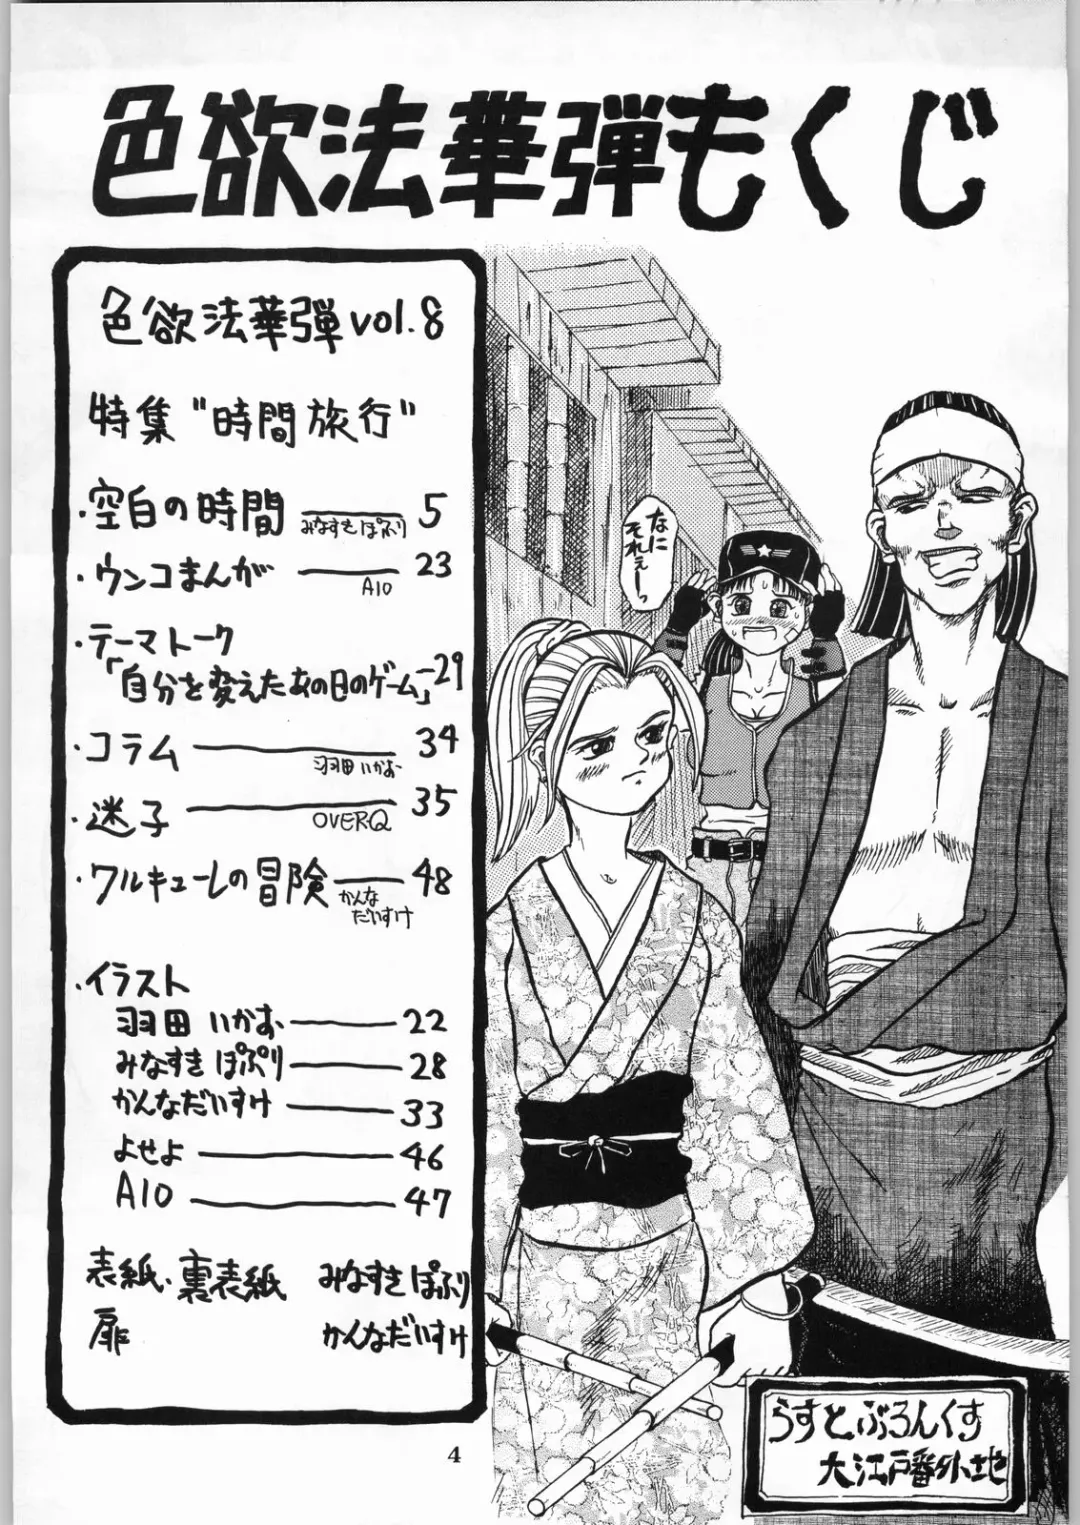 色欲法華弾もくじ
色欲法華弾vol.8
特集"時間旅行"
・空白の時間 5
みなすきぽぷり
・ウンコまんが 23
A10
・テーマトーク
「自分を変えたあの日のゲーム」29
・コラム 34
羽田いかお
・迷子 35
OVERQ
・ワルキューレの冒険 48
かんな
だいすけ
・イラスト
羽田いかお 22
みなすきぽぷり 28
かんなだいすけ 33
よせよ 46
A10 47
表紙・裏表紙 みなすきぽぷり
扉 かんなだいすけ
なに
それぇーっ
らすとぶろんくす
大江戸番外地
4